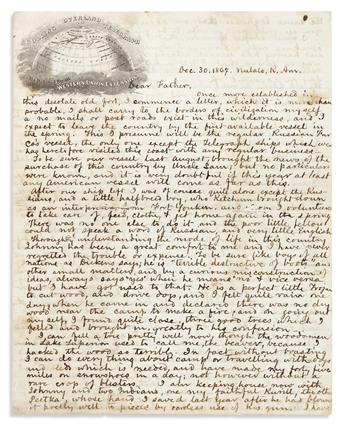 OVERLAND
WESTERN UNION EXTEN
Dec. 30. 1867. Nulato, R. Am.
Dear Father,
Once more established in
this desolate old fort, I commence a letter, which it is more than
probable, I shall carry to the borders of civilization myself
as no mails or post roads exist in this wilderness, and I
expect to leave the country by the first available vessel in
the spring. This I presume will be the regular Russian Fur
Co's vessel, the only one except the Telegraph ships which ever
has heretofore visited the coast with any regular business.
To be sure our vessel last August, brought the news of the
purchase of this country by Uncle Sam, but no particulars
were known, and it is very doubtful if this year at least
any American vessel will come as far as this.
After our ship left I was of course quite alone except the Rus-
sians, and a little halfbred boy, who Ketchum brought down
as an interpreter from Fort Youkon and I undertook
to take care of, feed, clothe, & get home again in the spring.
There was no one else to do it and the poor little fellow
could not speak a word of Russian, & very little English
Through understanding the mode of life in this country
Johnny has been a great comfort to me and I have never
regretted the trouble or expense. To be sure like boys of all
nations as Dickens says, he is "terrible destructive of boots" and
other small matters, and by a curious misconstruction of
ideas, always says "yes" when he means "no" & vice versa,
but I have got used to that. He is a perfect little Trojan
to cut wood, and drive dogs, and I felt quite vain one
day, when he came in and declared there was no dry
wood near the camp to make a fire; and on going out
myself I found quite close, three good trees which I
felled and brought in, greatly to his confusion.
I can fell a tree pretty well now, though the woodsmen
in Lake Superior used to call me the beaver, because I
hacked the wood so terribly. In fact without boasting
I can do every thing about camp or travelling with dogs
and sleds which is needed, and have made my forty five
miles on snowshoes in a day; not however without a
rare crop of blisters. I am keeping house now with
Johnny and two Indians, one my faithful Kurill, the other
Peetka, whose hand I saved last year after he had blown
it pretty well in pieces by careless use of his gun. I have